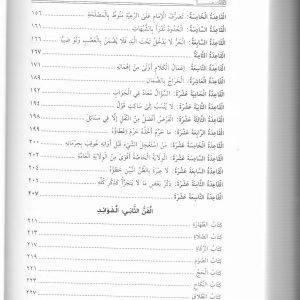 القَاعِدَةُ الخَامِسَةُ: تَصَرُّفُ الإِمَامِ عَلَى الرَّعِيَّةِ مَنُوطٌ بِالْمَصْلَحَةِ ١٥٦
القَاعِدَةُ السَّادِسَةُ: الْحُدُودُ تُدْرَأُ بِالشُّبُهَاتِ ١٦١
القَاعِدَةُ السَّابِعَةُ: الْحُرُّ لَا يَدْخُلُ تَحْتَ الْيَدِ فَلَا يُضْمَنُ بِالْغَصْبِ وَلَوْ صَبِيًّا ١٦٦
القَاعِدَةُ الثَّامِنَةُ ١٦٧
القَاعِدَةُ التَّاسِعَةُ: إِعْمَالُ الْكَلَامِ أَوْلَى مِنْ إِهْمَالِهِ ١٧١
القَاعِدَةُ الْعَاشِرَةُ: الْخَرَاجُ بِالضَّمَانِ ١٨٩
القَاعِدَةُ الْحَادِيَةَ عَشْرَةَ: السُّؤَالُ مُعَادٌ فِي الْجَوَابِ ١٩٢
القَاعِدَةُ الثَّانِيَةَ عَشْرَةَ: لَا يُنْسَبُ إِلَى سَاكِتٍ قَوْلٌ ١٩٤
القَاعِدَةُ الثَّالِثَةَ عَشْرَةَ: الْفَرْضُ أَفْضَلُ مِنَ النَّفْلِ إِلَّا فِي مَسَائِلَ ١٩٨
القَاعِدَةُ الرَّابِعَةَ عَشْرَةَ: مَا حَرُمَ أَخْذُهُ حَرُمَ إِعْطَاؤُهُ ١٩٩
القَاعِدَةُ الْخَامِسَةَ عَشْرَةَ: مَنِ اسْتَعْجَلَ الشَّيْءَ قَبْلَ أَوَانِهِ عُوقِبَ بِحِرْمَانِهِ ٢٠٠
القَاعِدَةُ السَّادِسَةَ عَشْرَةَ: الْوِلَايَةُ الْخَاصَّةُ أَقْوَى مِنَ الْوِلَايَةِ الْعَامَّةِ ٢٠٢
القَاعِدَةُ السَّابِعَةَ عَشْرَةَ: لَا عِبْرَةَ بِالظَّنِّ الْبَيِّنِ خَطَؤُهُ ٢٠٤
القَاعِدَةُ الثَّامِنَةَ عَشْرَةَ: ذِكْرُ بَعْضِ مَا لَا يَتَجَزَّأُ كَذِكْرِ كُلِّهِ ٢٠٦
القَاعِدَةُ التَّاسِعَةَ عَشْرَةَ ٢٠٧
الْفَنُّ الثَّانِي: الْفَوَائِدُ
كِتَابُ الطَّهَارَةِ ٢١١
كِتَابُ الصَّلَاةِ ٢١٣
كِتَابُ الزَّكَاةِ ٢١٧
كِتَابُ الصَّوْمِ ٢١٩
كِتَابُ الْحَجِّ ٢٢١
كِتَابُ النِّكَاحِ ٢٢٣
كِتَابُ الطَّلَاقِ ٢٢٧